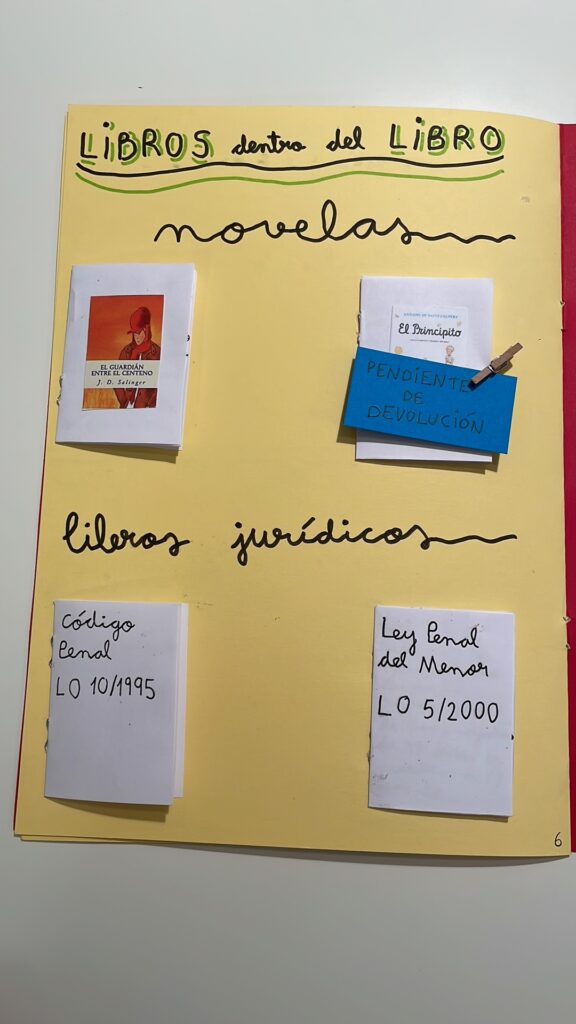 LiBROS dentro del LiBRO
novelas
EL GUARDIÁN
ENTRE EL CENTENO
J. D. Salinger
El Principito
PENDIENTE
DE
DEVOLUCIÓN
libros jurídicos
Código
Penal
LO 10/1995
Ley Penal
del Menor
LO 5/2000
6